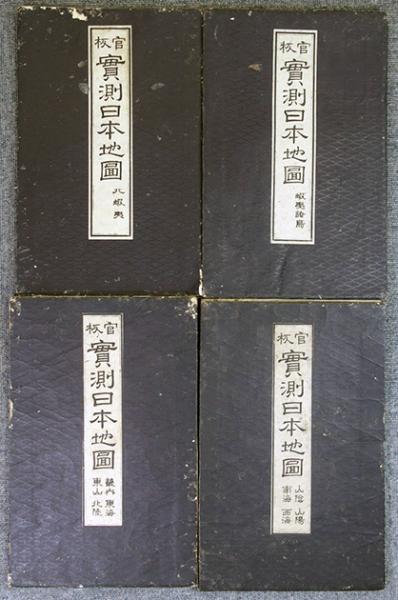 官板
實測日本地圖
北蝦夷
官板
實測日本地圖
蝦夷諸島
官板
實測日本地圖
畿内 東海
東山 北陸
官板
實測日本地圖
山陰 山陽
南海 西海